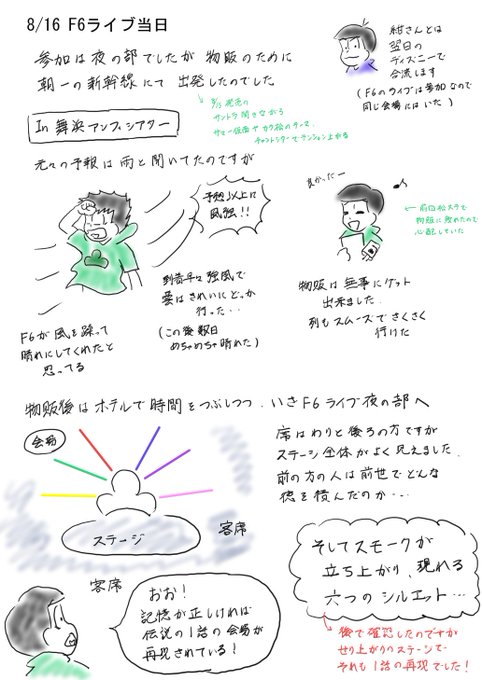 8/16 F6ライブ当日
参加は夜の部でしたが 物販のために
朝一の新幹線にて 出発したのでした
紺さんとは
翌日の
ディズニーで
合流します
(F6のライブは参加なので
同じ会場にはいた)
サントラ聞きながら
In 舞浜アンフィシアター
元々の予報は雨と聞いてたのですが
予想以上に
風強!!
到着手は強風で
雲はきれいにどっか
行った…
(この後数日
めちゃめちゃ晴れた)
F6が風を蹂って
晴れにしてくれたと
思ってる
良かったー
♪
←前回松ステで
物販に敗れたので
心配していた
物販は無事にゲット
出来ました
列もスムーズでさくさく
行けた
物販後はホテルで時間をつぶしつつ、いざF6ライブ夜の部へ
会場
ステージ
客席
客席
席はわりと後ろの方ですが
ステージ全体がよく見えました
前の方の人は前世でどんな
徳を積んだのか…
おお!
記憶が正しければ
伝説の1話の会場が
再現されている!
そしてスモークが
立ち上がり、現れる
六つのシルエット…
後で確認したのですが
せり上がりのステージで
それも1話の再現でした!